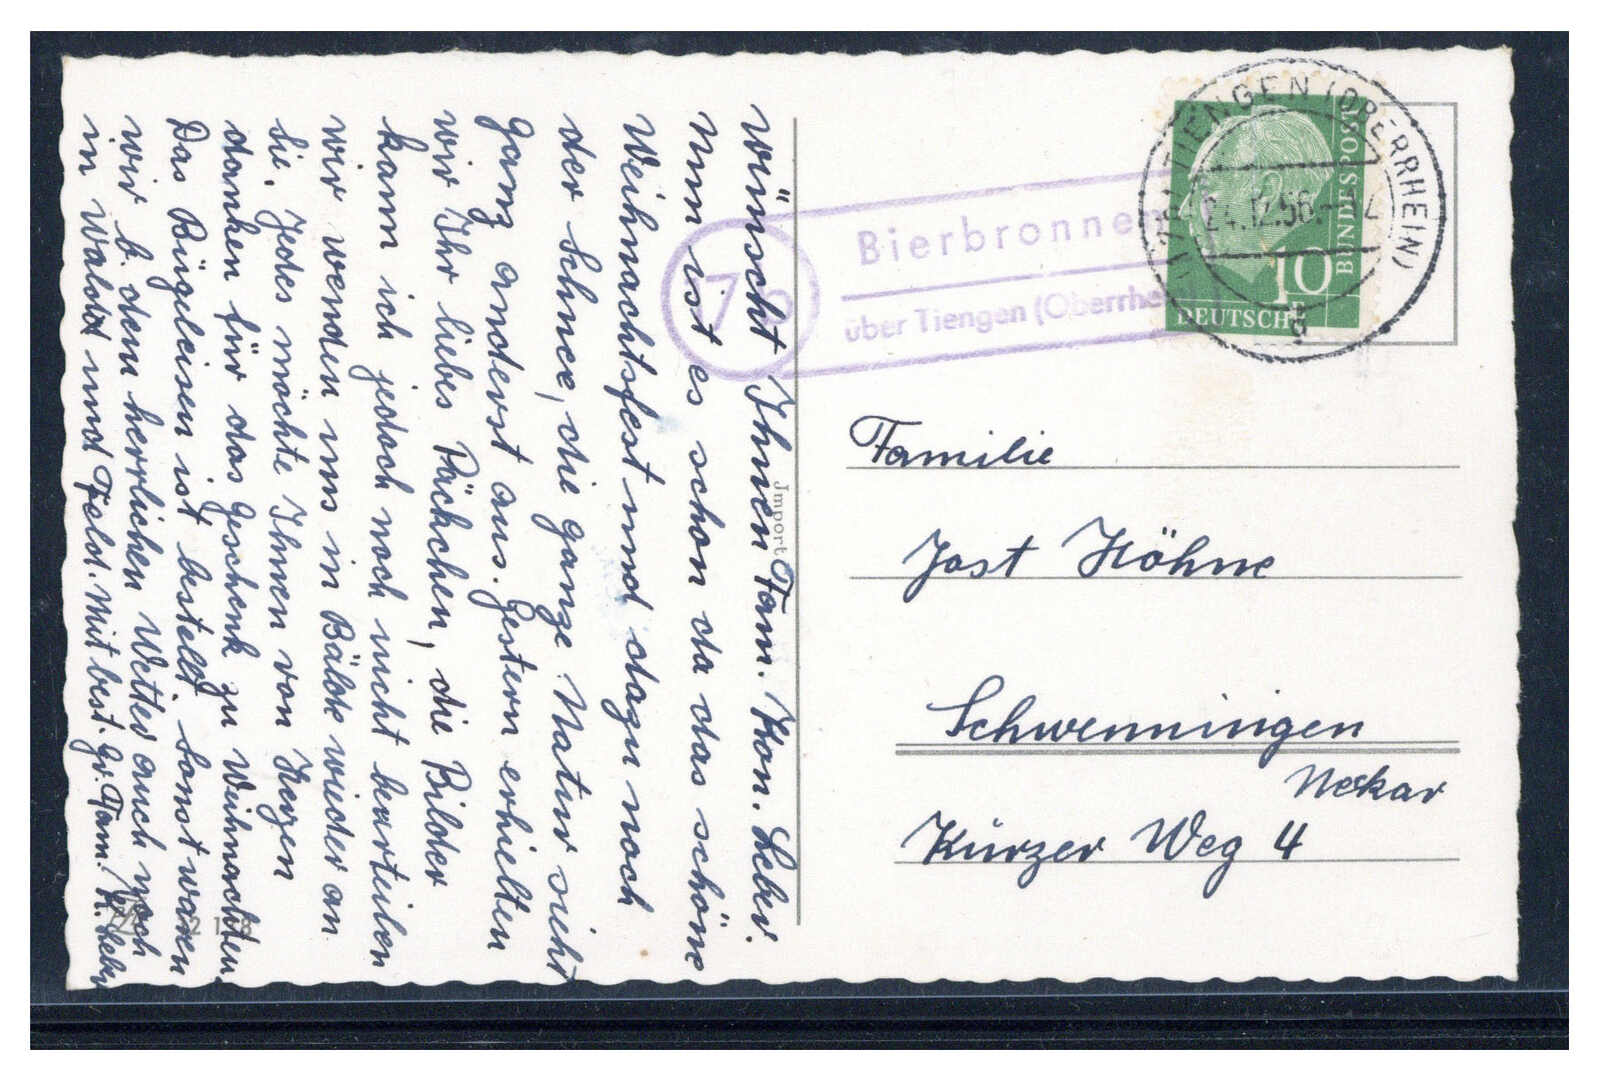 wünscht Ihnen Fam. Kon. Leber.
Nun ist es schon da das schöne
Weihnachtsfest und dazu noch
der Schnee, die ganze Natur sieht
ganz anderst aus. Gestern erhielten
wir Ihr liebes Päckchen, die Bilder
kann ich jedoch noch nicht berteilen
wir wenden uns in Bälde wieder an
Sie. Jedes möchte Ihnen von Herzen
danken für das Geschenk zu Weihnachten.
Das Bügeleisen ist bestellt. Sonst waren
wir b. dem herrlichen Wetter auch noch
in Wald und Feld. Mit best. Gr. Fam. K. Leber
Import
17b
Bierbronnen
über Tiengen (Oberrhe
(17b) TIENGEN (OBERRHEIN)
24.12.56.
10
DEUTSCHE
BUNDESPOST
Familie
Jost Höhne
Schwenningen
Neckar
Kürzer Weg 4